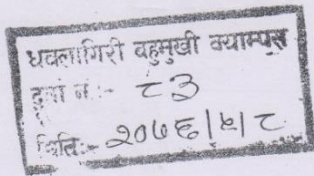 धवलागिरी बहुमुखी क्याम्पस
दर्ता नं:- ८३
मिति:- २०७६|५|८